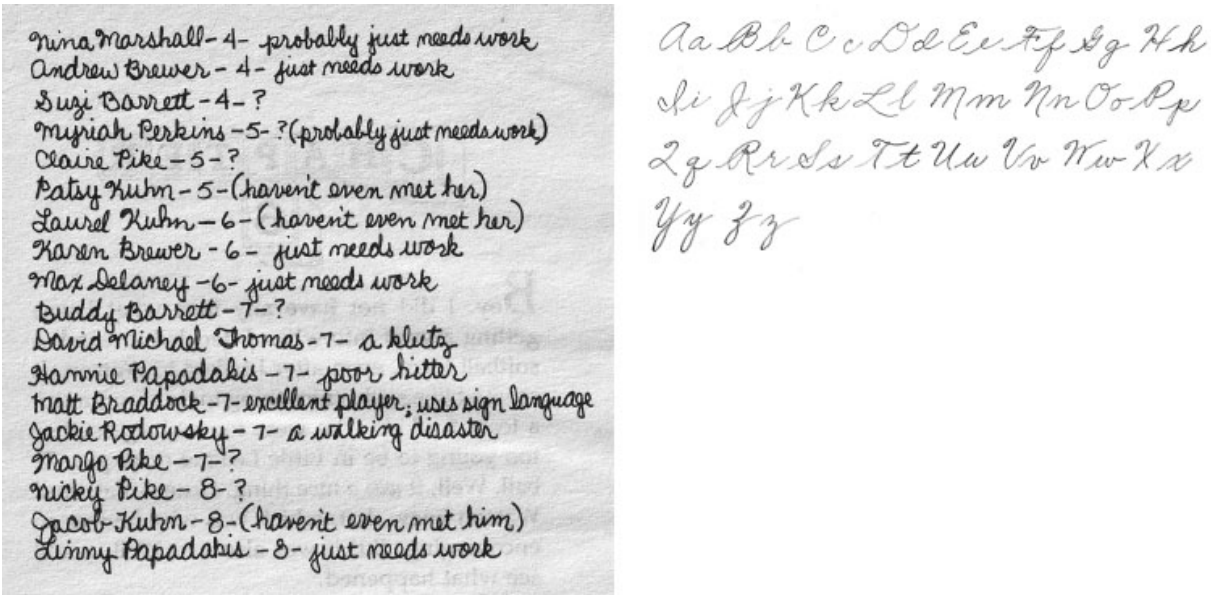 Nina Marshall - 4 - probably just needs work
Andrew Brewer - 4 - just needs work
Suzi Barrett - 4 - ?
Myriah Perkins - 5 - ? (probably just needs work)
Claire Pike - 5 - ?
Patsy Kuhn - 5 - (haven't even met her)
Laurel Kuhn - 6 - (haven't even met her)
Karen Brewer - 6 - just needs work
Max Delaney - 6 - just needs work
Buddy Barrett - 7 - ?
David Michael Thomas - 7 - a klutz
Hannie Papadakis - 7 - poor hitter
Matt Braddock - 7 - excellent player; uses sign language
Jackie Rodowsky - 7 - a walking disaster
Margo Pike - 7 - ?
Nicky Pike - 8 - ?
Jacob Kuhn - 8 - (haven't even met him)
Linny Papadakis - 8 - just needs work
Aa Bb Cc Dd Ee Ff Gg Hh
Ii Jj Kk Ll Mm Nn Oo Pp
Qq Rr Ss Tt Uu Vv Ww Xx
Yy Zz